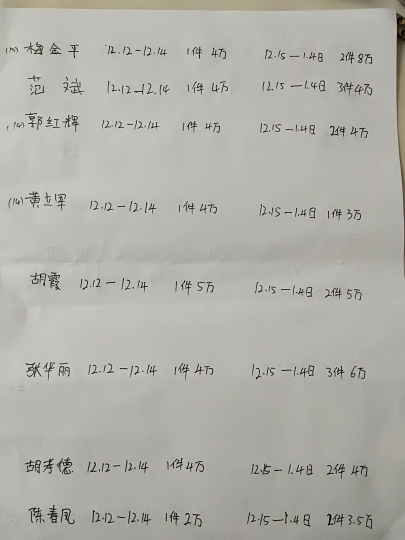 (15) 梅金平 12.12-12.14 1件4万 12.15-1.4日 2件8万
范斌 12.12-12.14 1件4万 12.15-1.4日 3件4万
郭红辉 12.12-12.14 1件4万 12.15-1.4日 2件4万
(14) 黄立军 12.12-12.14 1件4万 12.15-1.4日 1件3万
胡霞 12.12-12.14 1件5万 12.15-1.4日 2件5万
张华丽 12.12-12.14 1件4万 12.15-1.4日 3件6万
胡孝德 12.12-12.14 1件4万 12.15-1.4日 2件4万
陈春凤 12.12-12.14 1件2万 12.15-1.4日 2件3.5万